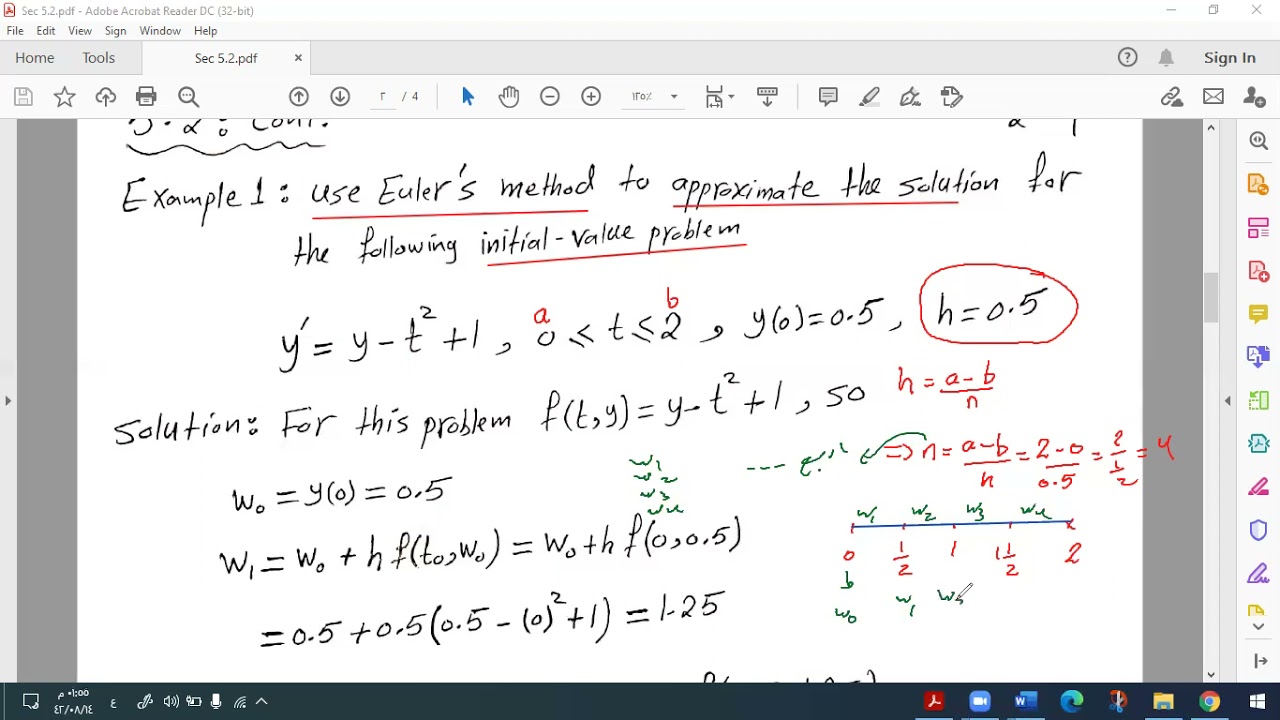 Sec 5.2.pdf - Adobe Acrobat Reader DC (32-bit)
File Edit View Sign Window Help
Home Tools Sec 5.2.pdf × Sign In
٢ / 4 ١٢٥٪
5.2: Cont.
Example 1: use Euler's method to approximate the solution for
the following initial-value problem
a b
y' = y - t² + 1 , 0 ≤ t ≤ 2 , y(0) = 0.5 , h = 0.5
h = a-b / n
Solution: For this problem f(t,y) = y - t² + 1 , so
⇒ n = a-b / h = 2-0 / 0.5 = 2 / 1/2 = 4
w1
w2
w3
w4
w0 = y(0) = 0.5
w1 w2 w3 w4
0 1/2 1 1 1/2 2
w1 = w0 + h f(t0,w0) = w0 + h f(0,0.5)
w0 w1
= 0.5 + 0.5(0.5 - (0)² + 1) = 1.25
م ٠١:٥٥
٤٢/٠٨/١٤
ع